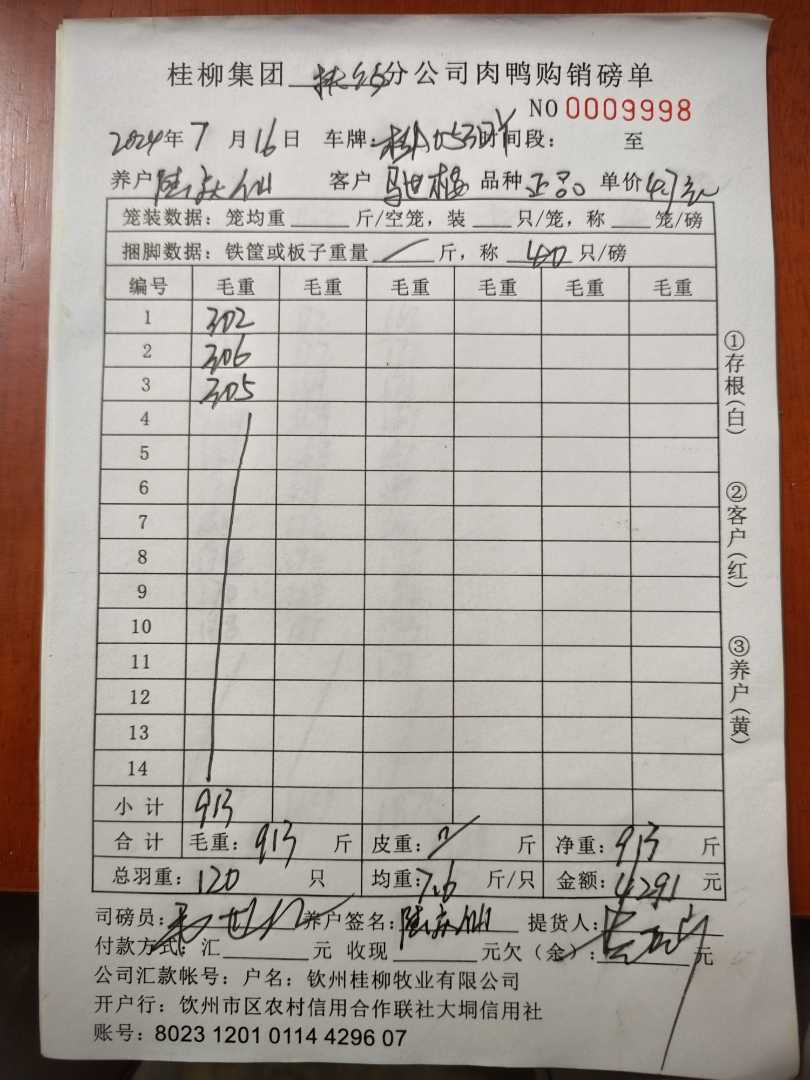 桂柳集团 分公司肉鸭购销磅单
NO 0009998
2024年7月16日 车牌: 时间段: 至
养户 陆庆仙 客户 品种 正品 单价 4.7元
笼装数据: 笼均重 斤/空笼, 装 只/笼, 称 笼/磅
捆脚数据: 铁筐或板子重量 / 斤, 称 40 只/磅
编号 毛重 毛重 毛重 毛重 毛重 毛重
1 302
2 306
3 305
4
5
6
7
8
9
10
11
12
13
14
小计 913
合计 毛重: 913 斤 皮重: 斤 净重: 913 斤
总羽重: 120 只 均重: 7.6 斤/只 金额: 4291 元
司磅员: 养户签名: 陆庆仙 提货人:
付款方式: 汇 元 收现 元欠(余): 元
公司汇款帐号: 户名: 钦州桂柳牧业有限公司
开户行: 钦州市区农村信用合作联社大垌信用社
账号: 8023 1201 0114 4296 07
①存根(白)
②客户(红)
③养户(黄)